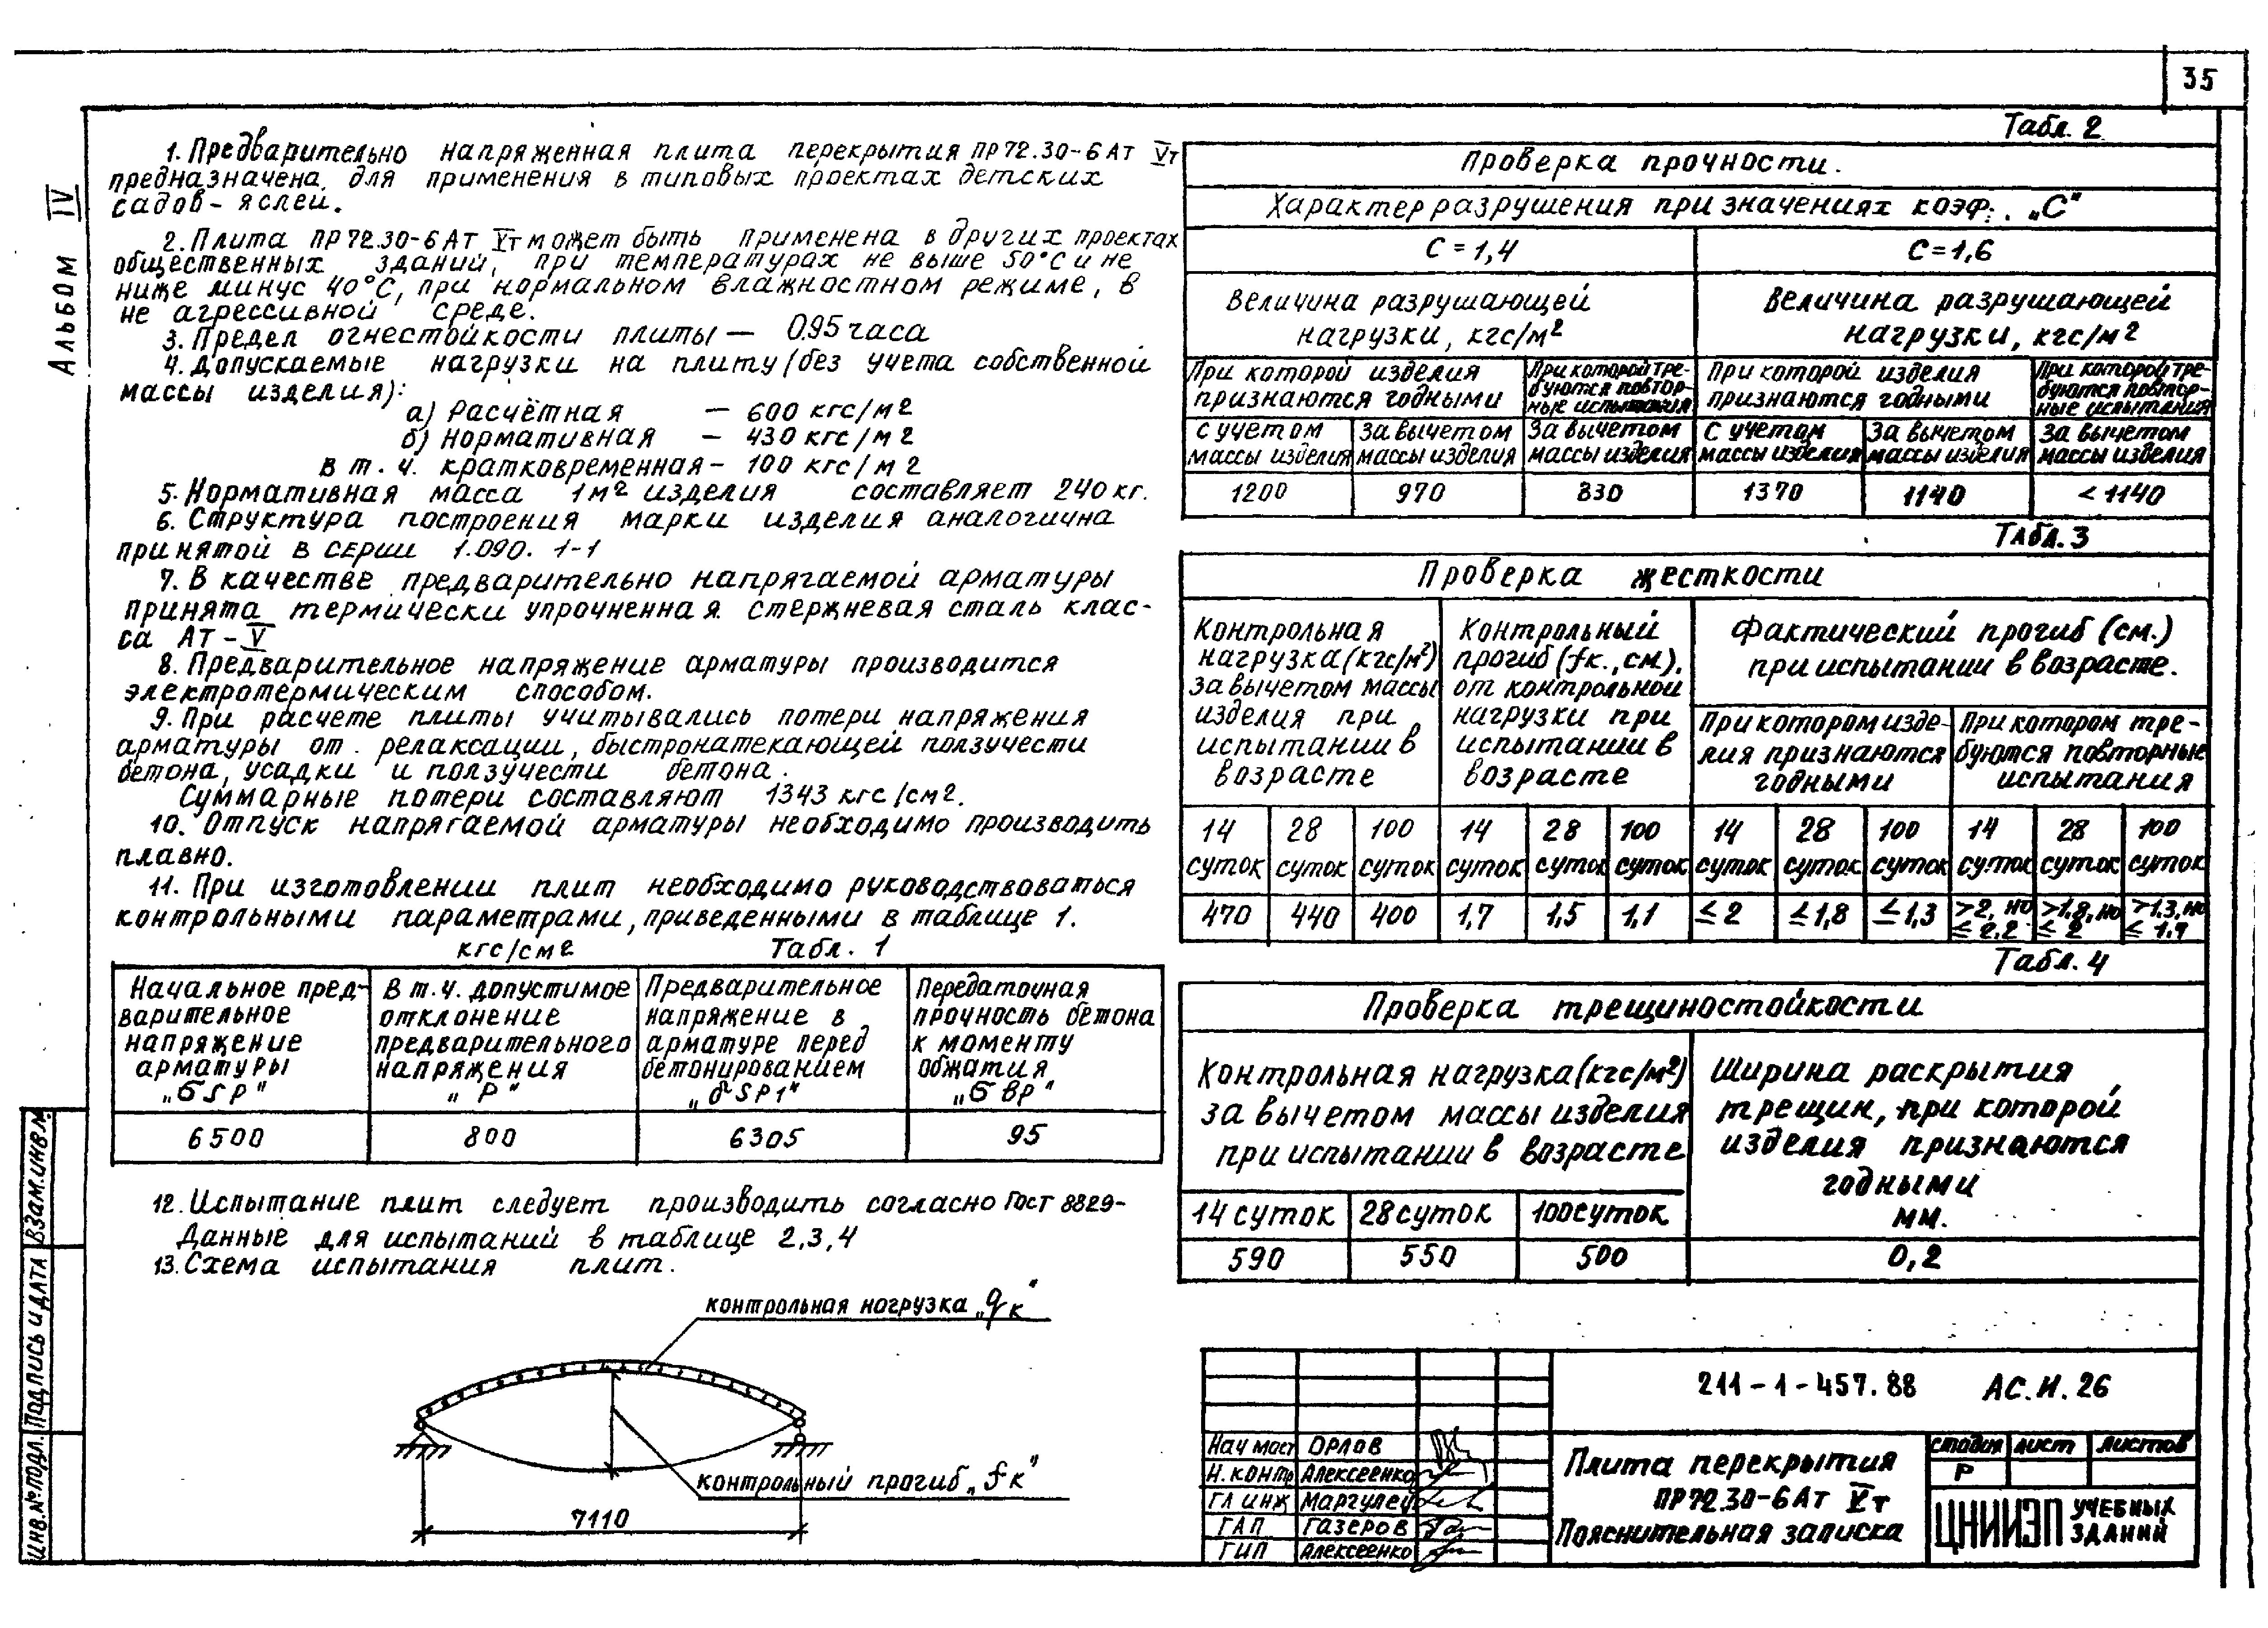 35
Альбом IV
1. Предварительно напряженная плита перекрытия ПР72.30-6Ат Vт
предназначена для применения в типовых проектах детских
садов-яслей.
2. Плита ПР72.30-6Ат Vт может быть применена в других проектах
общественных зданий, при температурах не выше 50°С и не
ниже минус 40°С, при нормальном влажностном режиме, в
не агрессивной среде.
3. Предел огнестойкости плиты — 0.95 часа
4. Допускаемые нагрузки на плиту (без учета собственной
массы изделия):
а) Расчётная — 600 кгс/м2
б) Нормативная — 430 кгс/м2
в т. ч. кратковременная - 100 кгс/м2
5. Нормативная масса 1м2 изделия составляет 240 кг.
6. Структура построения марки изделия аналогична
принятой в серии 1.090.1-1
7. В качестве предварительно напрягаемой арматуры
принята термически упрочненная стержневая сталь клас-
са Ат-V
8. Предварительное напряжение арматуры производится
электротермическим способом.
9. При расчете плиты учитывались потери напряжения
арматуры от релаксации, быстронатекающей ползучести
бетона, усадки и ползучести бетона.
Суммарные потери составляют 1343 кгс/см2.
10. Отпуск напрягаемой арматуры необходимо производить
плавно.
11. При изготовлении плит необходимо руководствоваться
контрольными параметрами, приведенными в таблице 1.
кгс/см2 Табл. 1
Начальное пред-
варительное
напряжение
арматуры
„σSP"
В т.ч. допустимое
отклонение
предварительного
напряжения
„P"
Предварительное
напряжение в
арматуре перед
бетонированием
„σSP1"
Передаточная
прочность бетона
к моменту
обжатия
„σвр"
6500 800 6305 95
12. Испытание плит следует производить согласно Гост 8829-
Данные для испытаний в таблице 2,3,4
13. Схема испытания плит.
контрольная нагрузка „qк"
контрольный прогиб „fк"
7110
Табл. 2
Проверка прочности.
Характер разрушения при значениях коэф. „С"
С = 1,4 С=1,6
Величина разрушающей
нагрузки, кгс/м2
Величина разрушающей
нагрузки, кгс/м2
При которой изделия
признаются годными
При которой тре-
буются повтор-
ные испытания
При которой изделия
признаются годными
При которой тре-
буются повтор-
ные испытания
С учетом
массы изделия
За вычетом
массы изделия
За вычетом
массы изделия
С учетом
массы изделия
За вычетом
массы изделия
За вычетом
массы изделия
1200 970 830 1370 1140 < 1140
Табл. 3
Проверка жесткости
Контрольная
нагрузка (кгс/м2)
за вычетом массы
изделия при
испытании в
возрасте
Контрольный
прогиб (fк., см.),
от контрольной
нагрузки при
испытании в
возрасте
Фактический прогиб (см.)
при испытании в возрасте.
При котором изде-
лия признаются
годными
При котором тре-
буются повторные
испытания
14 28 100 14 28 100 14 28 100 14 28 100
суток суток суток суток суток суток суток суток суток суток суток суток
470 440 400 1,7 1,5 1,1 ≤ 2 ≤ 1,8 ≤ 1,3 >2, но ≤ 2.2 >1,8, но ≤ 2 >1.3, но ≤
Табл. 4
Проверка трещиностойкости
Контрольная нагрузка (кгс/м2)
за вычетом массы изделия
при испытании в возрасте
Ширина раскрытия
трещин, при которой
изделия признаются
годными
мм.
14 суток 28 суток 100 суток
590 550 500 0,2
211-1-457.88 АС.И.26
Нач маст Орлов
Н.контр Алексеенко
Гл инж Маргулец
ГАП Газеров
ГИП Алексеенко
Плита перекрытия
ПР72.30-6Ат Vт
Пояснительная записка
стадия лист листов
Р
ЦНИИЭП учебных
зданий
Взам.инв.№
Подпись и дата
Инв.№ подл.